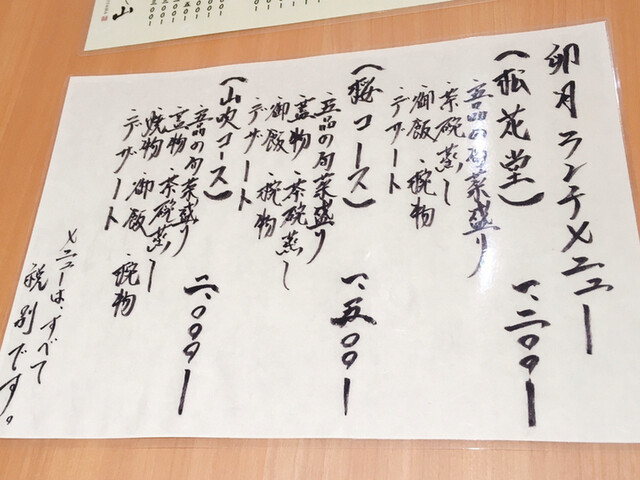 卯月ランチメニュー
(松花堂) 一、二〇〇ー
五品の旬菜盛り
茶碗蒸し
御飯 椀物
デザート
(桜コース) 一、五〇〇ー
五品の旬菜盛り
蓋物 茶碗蒸し
御飯 椀物
デザート
(山吹コース) 二、〇〇〇ー
五品の旬菜盛り
蓋物 茶碗蒸し
焼物 御飯 椀物
デザート
メニューは、すべて
税別です。
山